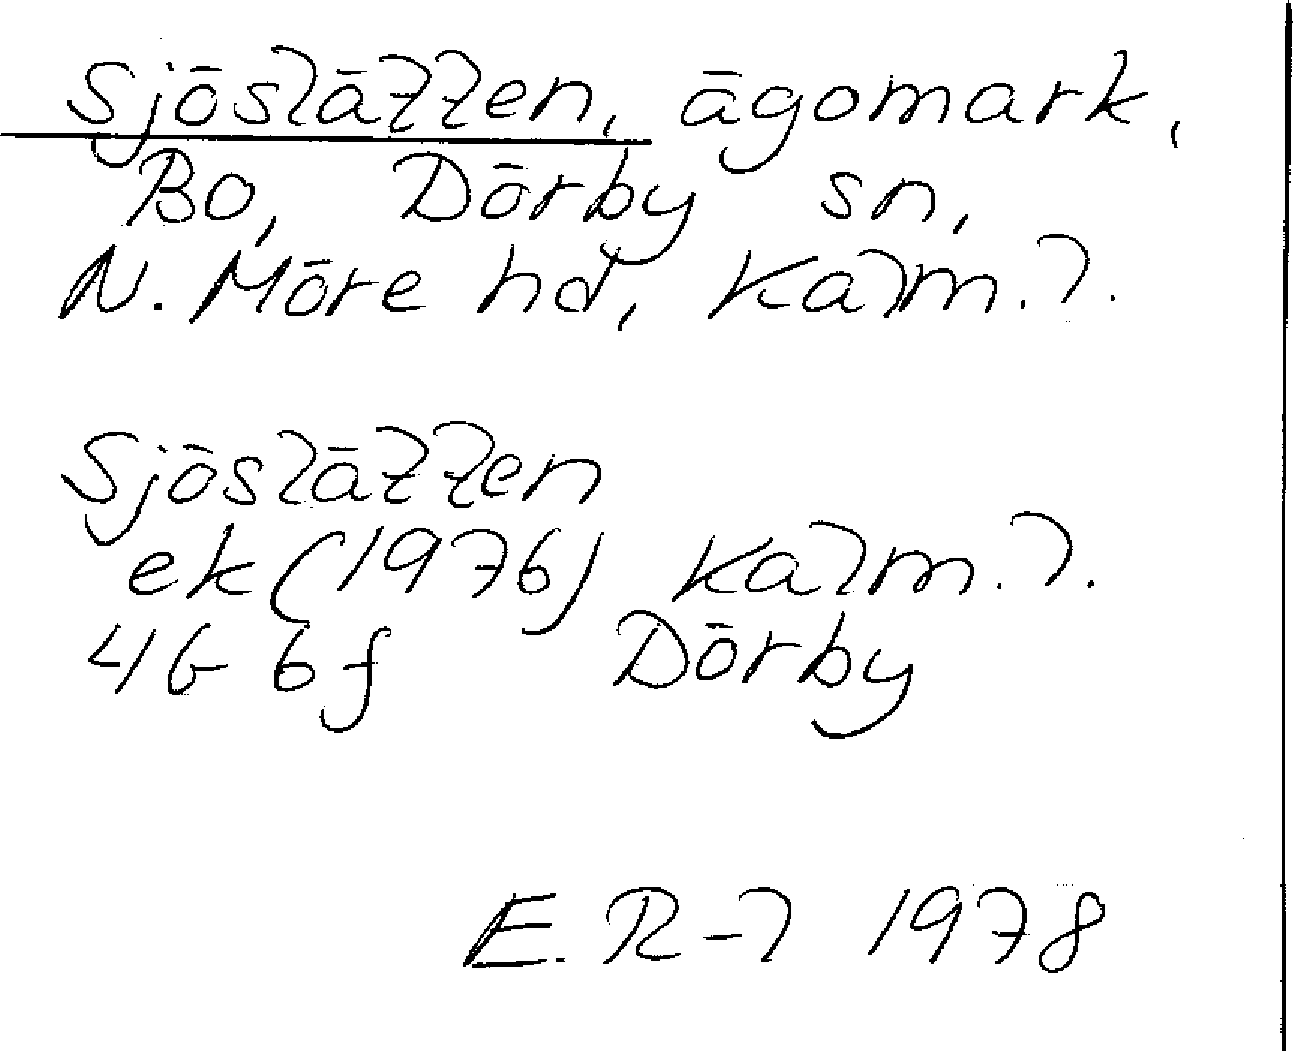 Sjöslätten, ägomark,
Bo, Dörby sn,
N. Möre hd, Kalm. l.
Sjöslätten
ek (1976) Kalm. l.
4G 6f Dörby
E. R-l 1978